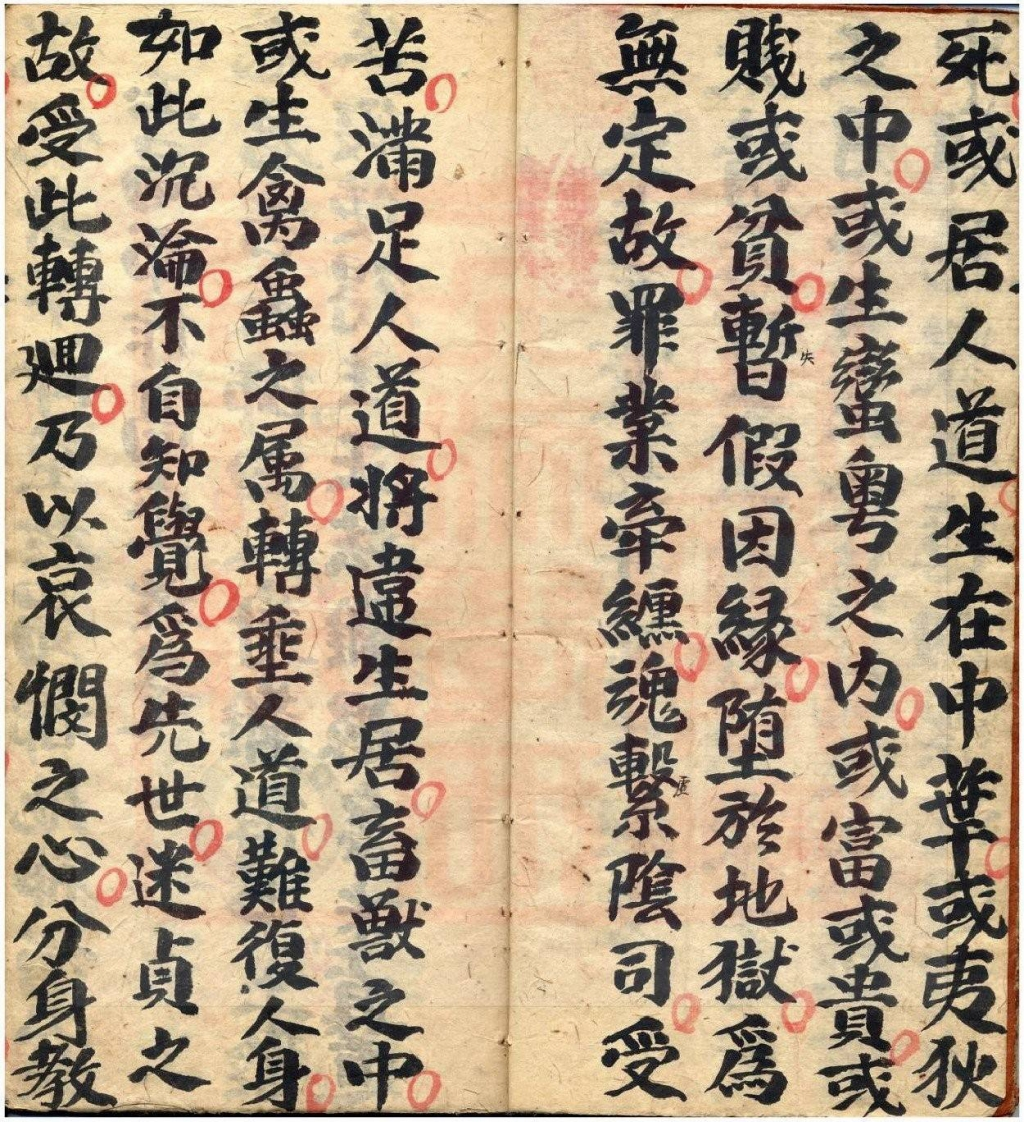 死或居人道生在中華或夷狄
之中或生蠻粤之内或富或貴或
賎或貧暫假因緣堕於地獄爲
無定故罪業牽纏魂繫陰司受
苦滿足人道将違生居畜獸之中
或生禽蟲之属轉乖人道難復人身
如此沉淪不自知覺爲先世迷貞之
故受此轉廻乃以哀憫之心分身教